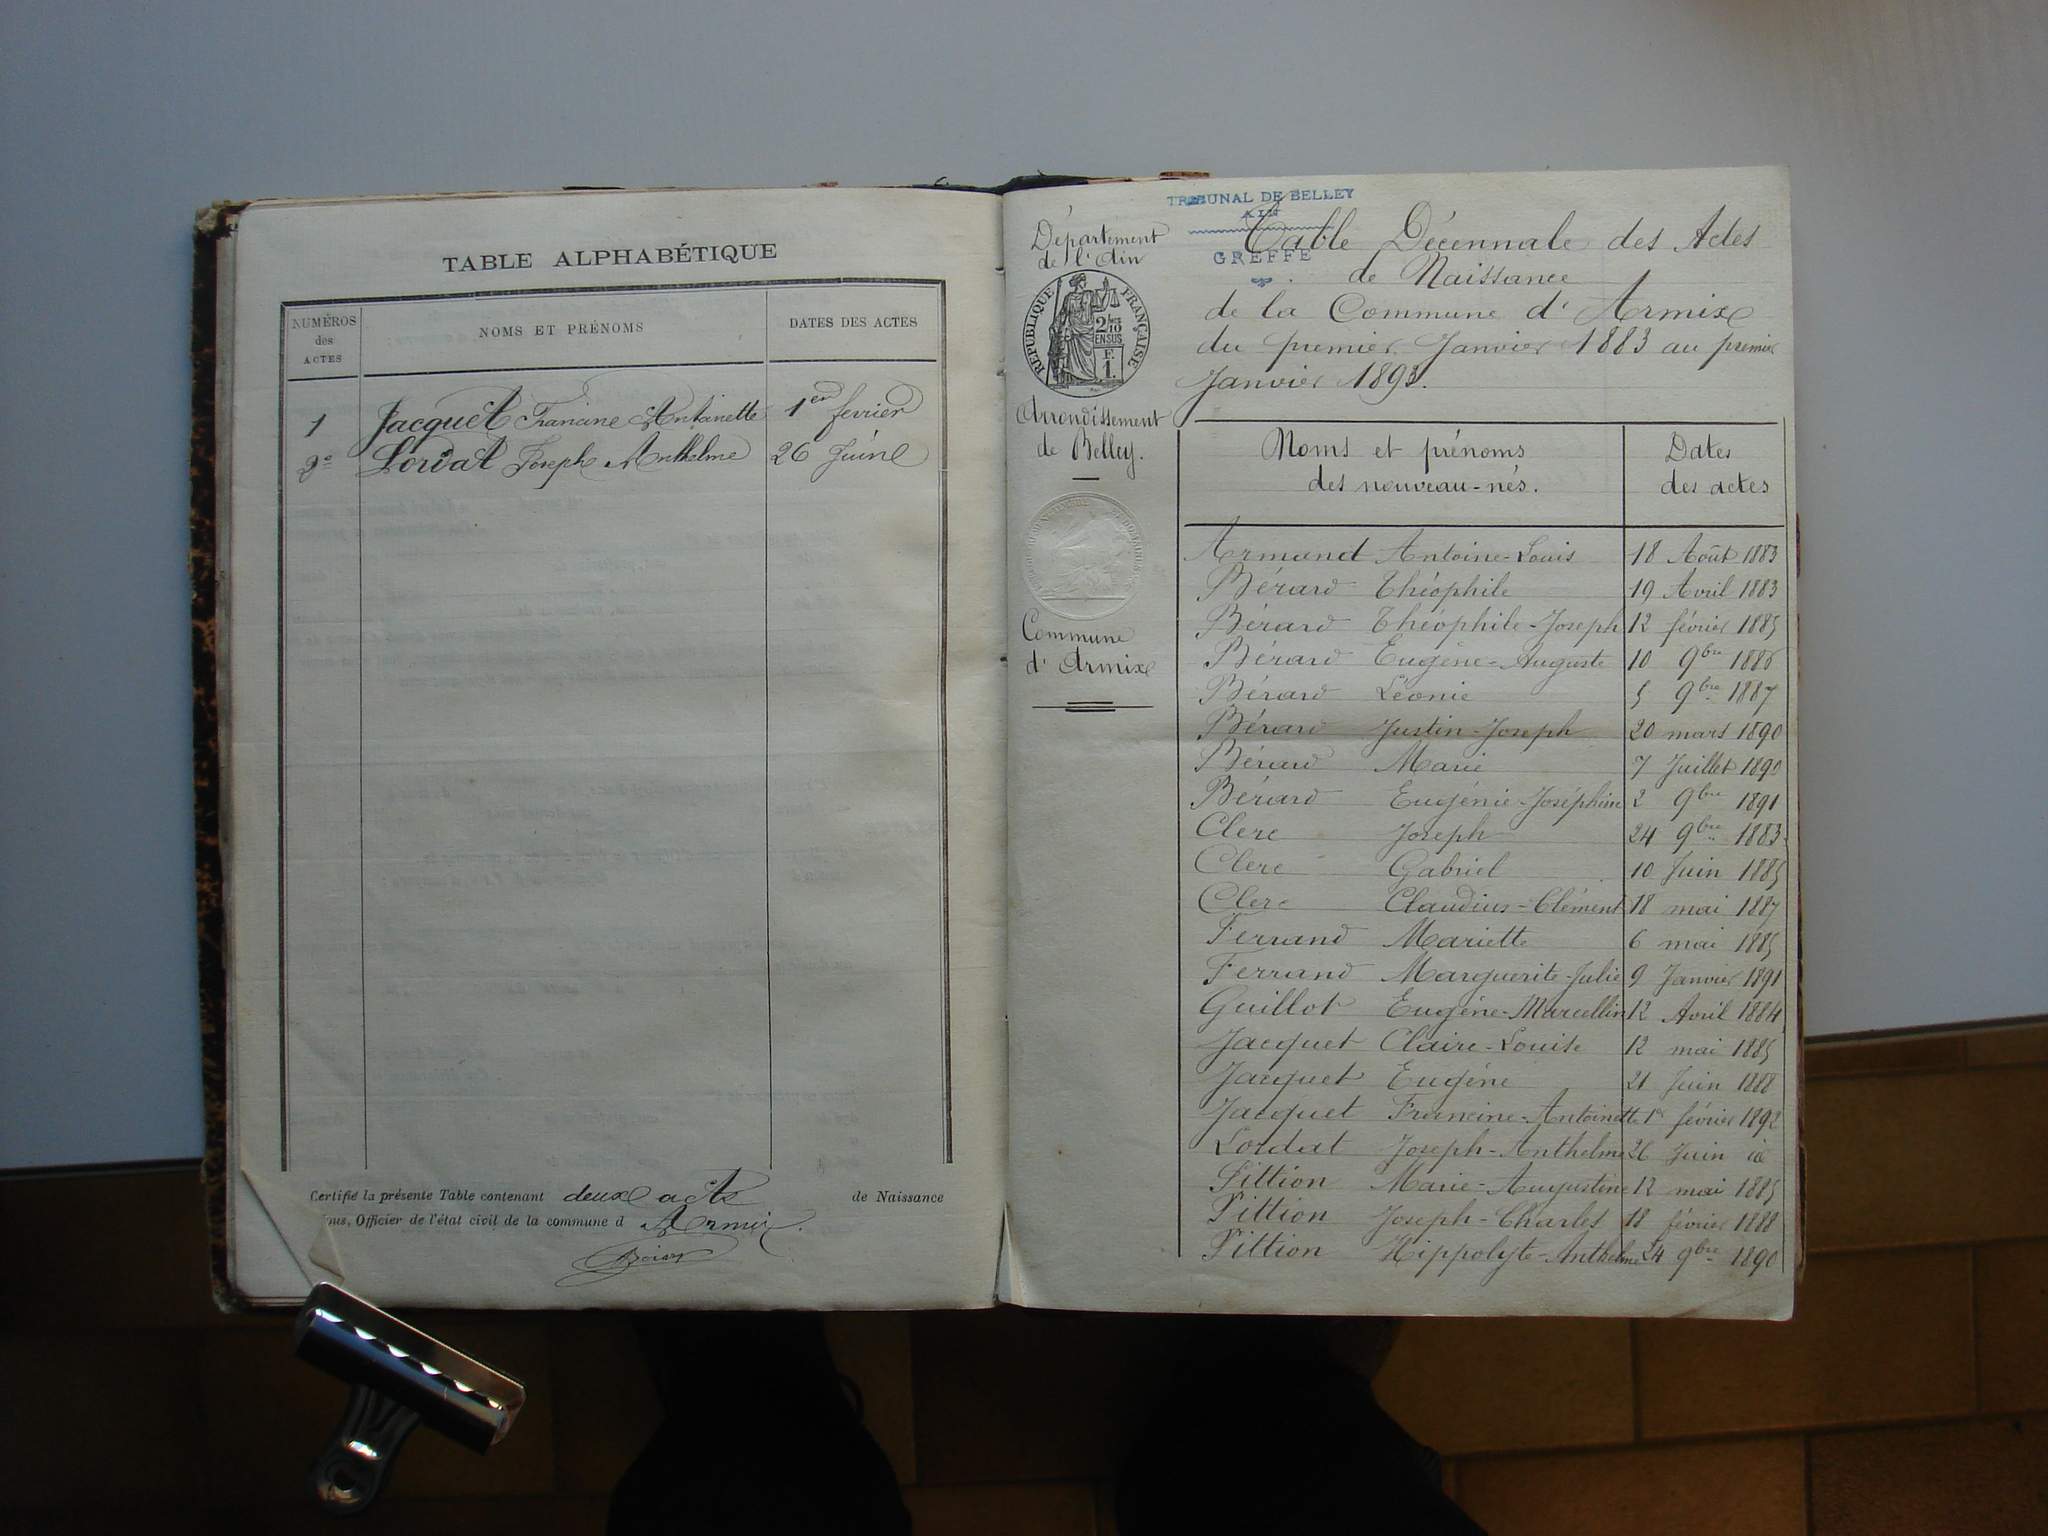 TABLE ALPHABÉTIQUE
NUMÉROS des ACTES
NOMS ET PRÉNOMS
DATES DES ACTES
1 Jacquet Francine Antoinette 1er fevrier
2e Lordat Joseph Anthelme 26 Juin
Certifié la présente Table contenant deux acte de Naissance
nous, Officier de l'état civil de la commune d Armix.
TRIBUNAL DE BELLEY
AIN
GREFFE
Département
de l'Ain
RÉPUBLIQUE FRANÇAISE
2/10
EN SUS
F.
1.
Arrondissement
de Belley.
Commune
d'Armix
Table Décennale des Actes
de Naissance
de la Commune d'Armix
du premier Janvier 1883 au premier
Janvier 1893.
Noms et prénoms
des nouveau-nés.
Dates
des actes
Armand Antoine-Louis 18 Août 1883
Bérard Théophile 19 Avril 1883
Bérard Théophile-Joseph 12 février 1885
Bérard Eugène-Auguste 10 9bre 1886
Bérard Léonie 5 9bre 1887
Bérard Justin-Joseph 20 mars 1890
Bérard Marie 7 Juillet 1890
Bérard Eugénie-Joséphine 2 9bre 1891
Clerc Joseph 24 9bre 1883
Clerc Gabriel 10 Juin 1885
Clerc Claudius-Clément 18 mai 1887
Ferrand Mariette 6 mai 1885
Ferrand Marguerite-Julie 9 Janvier 1891
Guillot Eugène-Marcellin 12 Avril 1884
Jacquet Claire-Louise 12 mai 1885
Jacquet Eugène 21 Juin 1888
Jacquet Francine-Antoinette 1er février 1892
Lordat Joseph-Anthelme 26 Juin id
Pittion Marie-Augustine 12 mai 1885
Pittion Joseph-Charles 18 février 1888
Pittion Hippolyte-Anthelme 24 9bre 1890